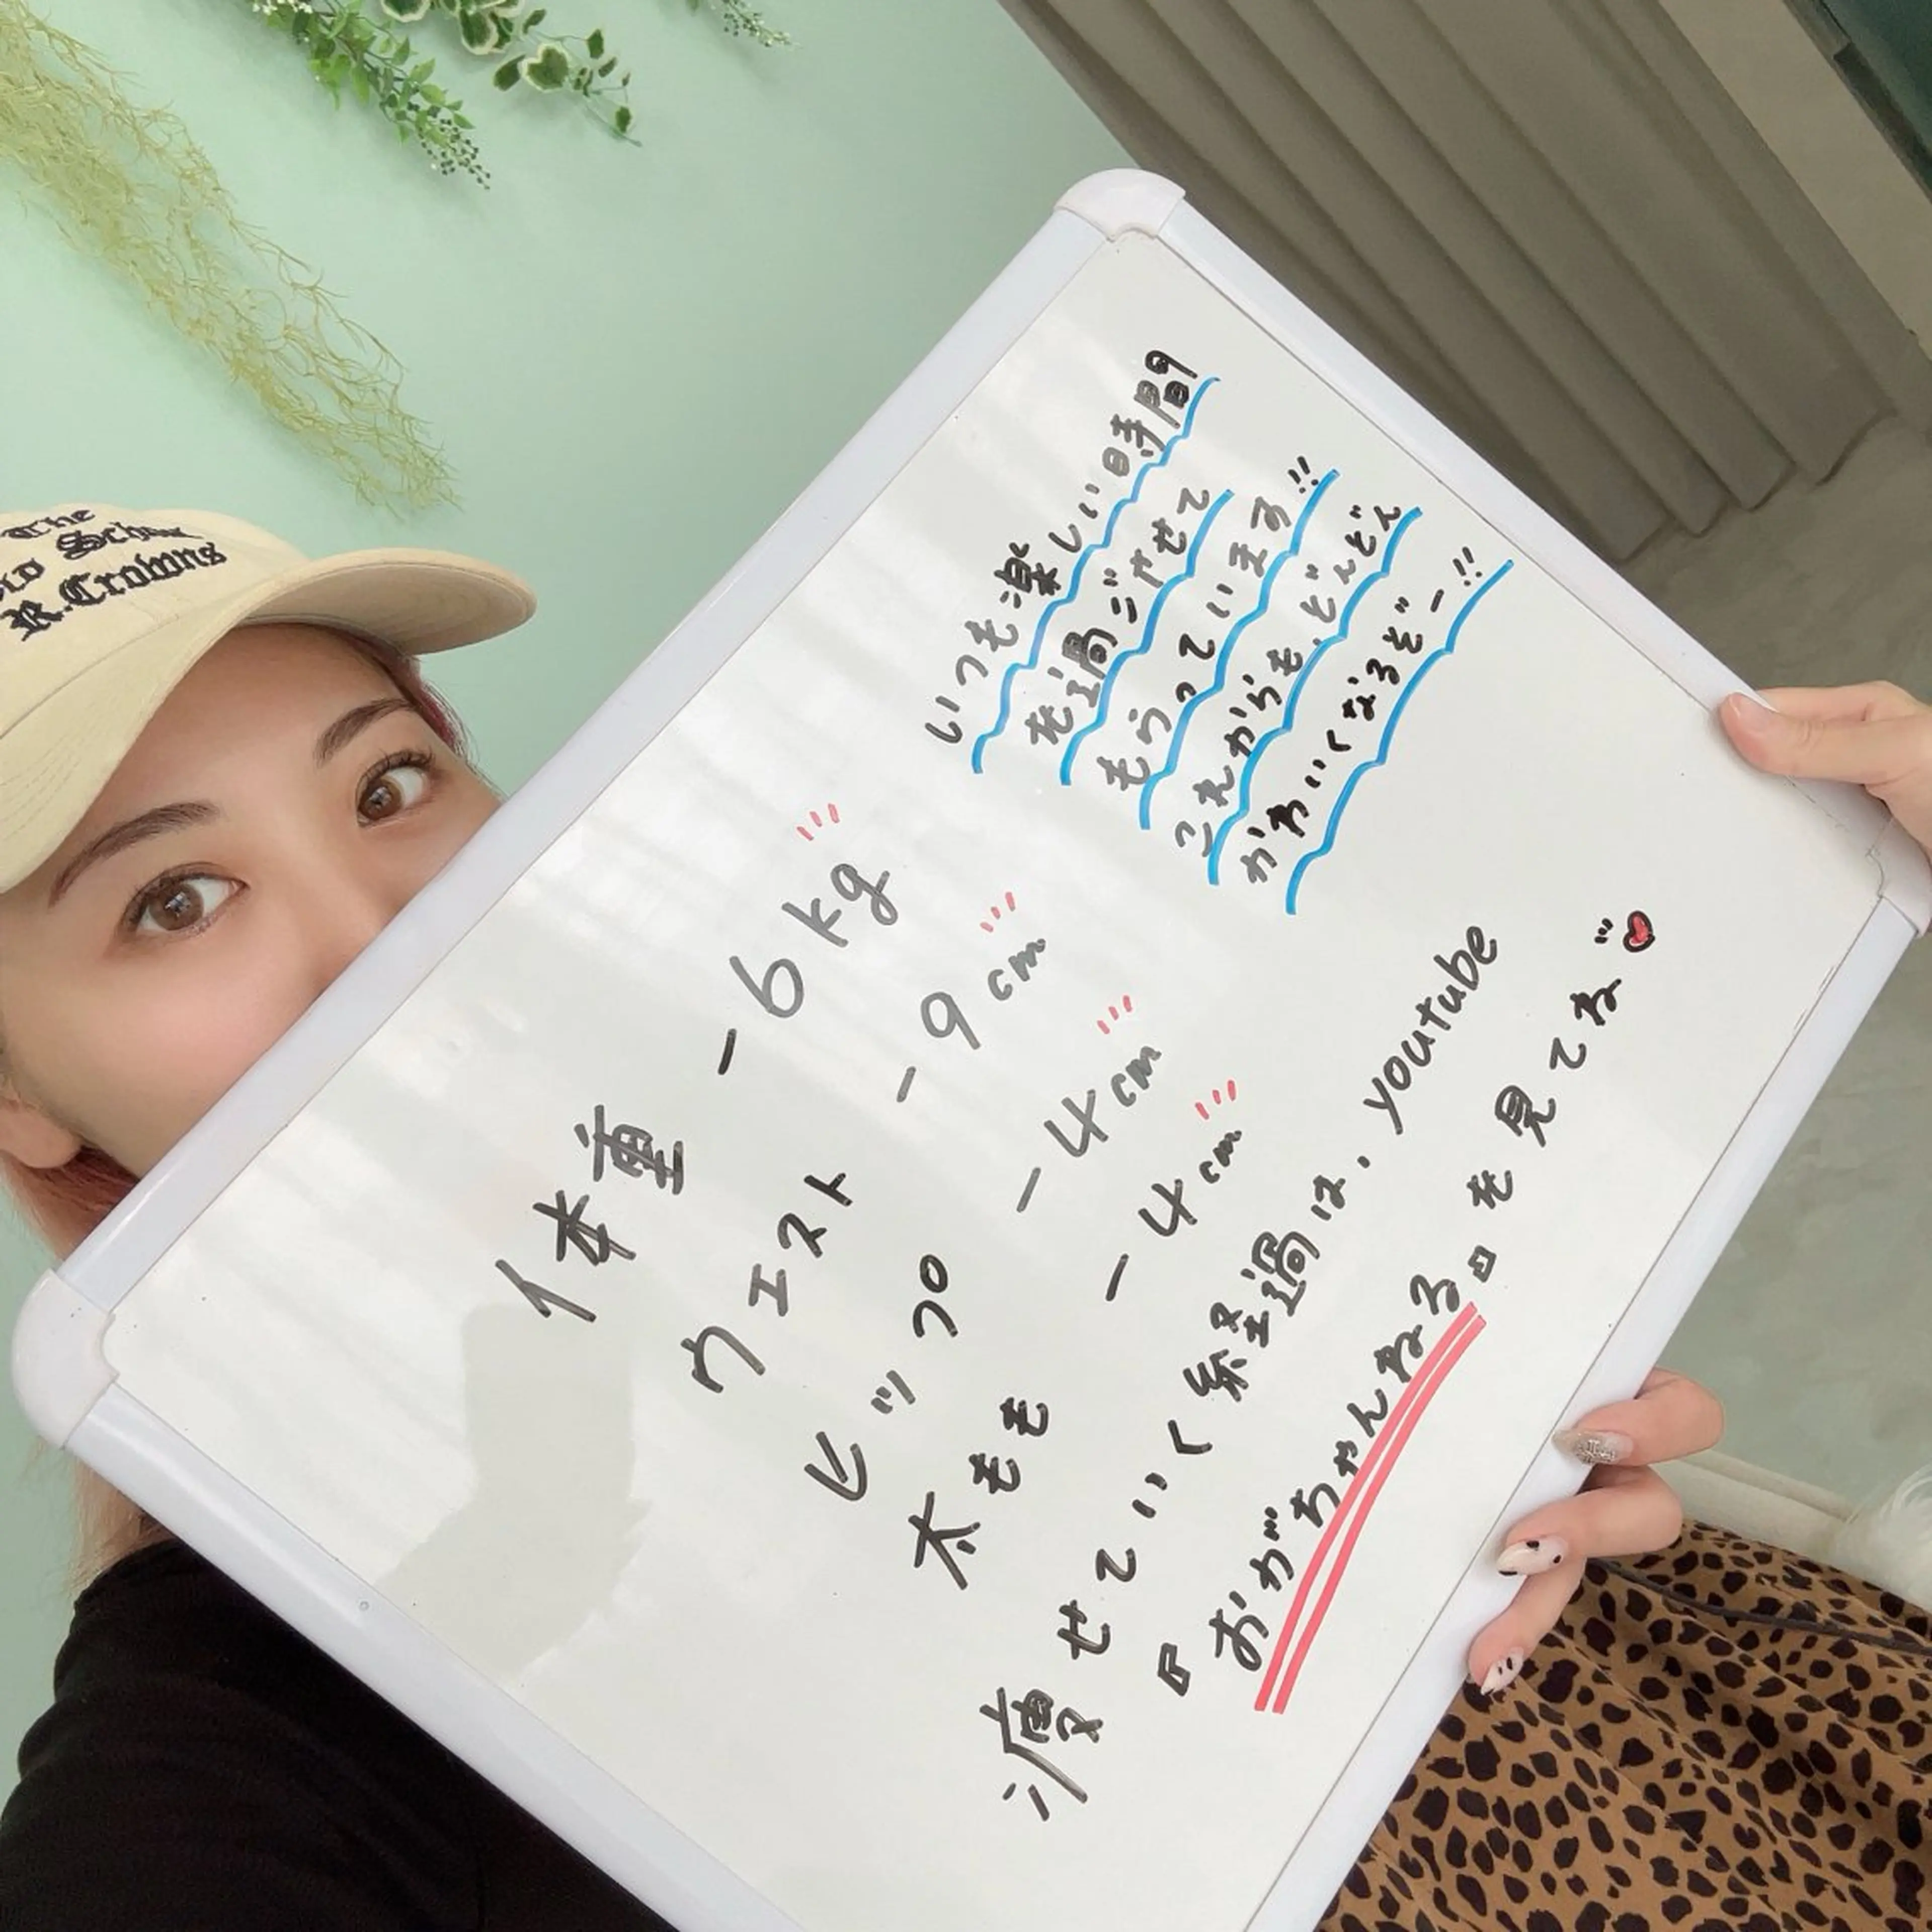 The
Old School
R.Crowns
体重 -6kg
ウェスト -9cm
ヒップ -4cm
太もも -4cm
いつも楽しい時間
を過ごさせて
もらっています!!
これからも、どんどん
かわいくなるぞー!!
痩せていく経過は、youtube
『おがちゃんねる』を見てね